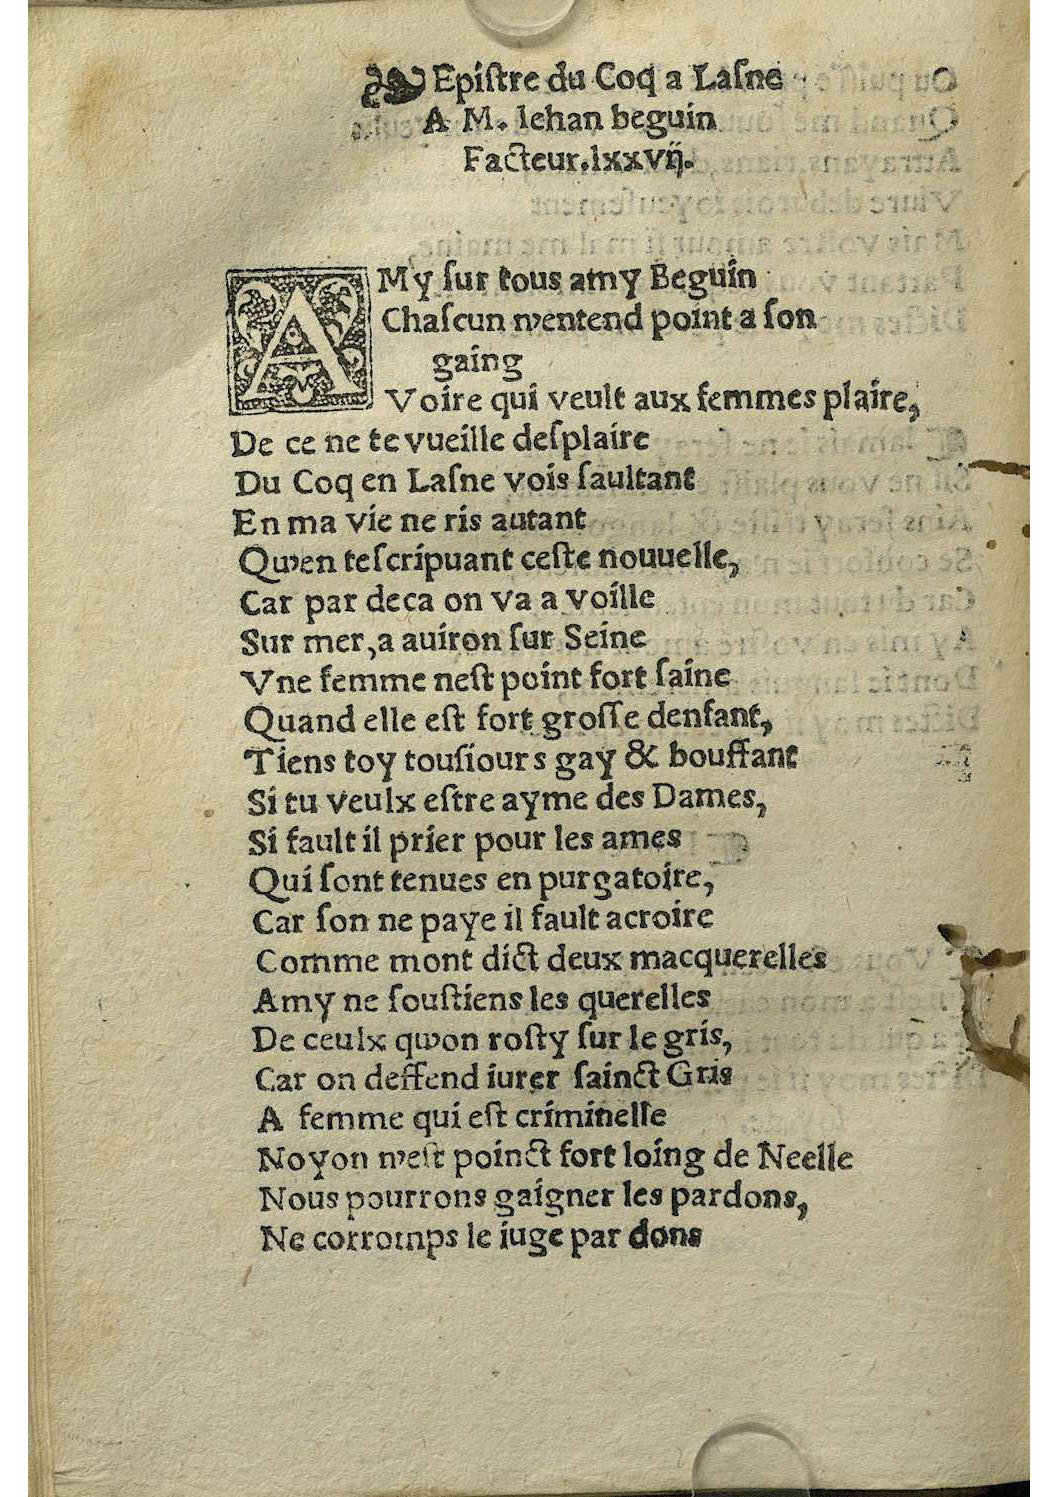 Epiſtre du Coq a Laſne
A M. Iehan beguin
Facteur.lxxvij.
AMy ſur tous amy Beguin
Chaſcun n'entend point a ſon
gaing
Voire qui veult aux femmes plaire,
De ce ne te vueille deſplaire
Du Coq en Laſne vois ſaultant
En ma vie ne ris autant
Qu'en teſcripuant ceſte nouuelle,
Car par deca on va a voille
Sur mer,a auiron ſur Seine
Vne femme neſt point fort ſaine
Quand elle eſt fort groſſe denfant,
Tiens toy touſiours gay & bouffant
Si tu veulx eſtre ayme des Dames,
Si fault il prier pour les ames
Qui ſont tenues en purgatoire,
Car ſon ne paye il fault acroire
Comme mont dict deux macquerelles
Amy ne ſouſtiens les querelles
De ceulx qu'on roſty ſur le gris,
Car on deffend iurer ſainct Gris
A femme qui eſt criminelle
Noyon n'eſt poinct fort loing de Neelle
Nous pourrons gaigner les pardons,
Ne corromps le iuge par dons